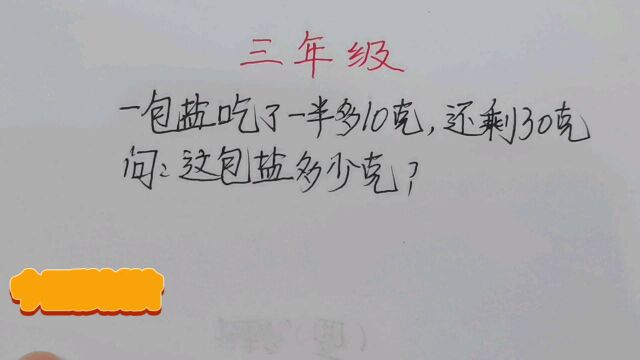 三年级
一包盐吃了一半多10克,还剩30克
问:这包盐多少克?